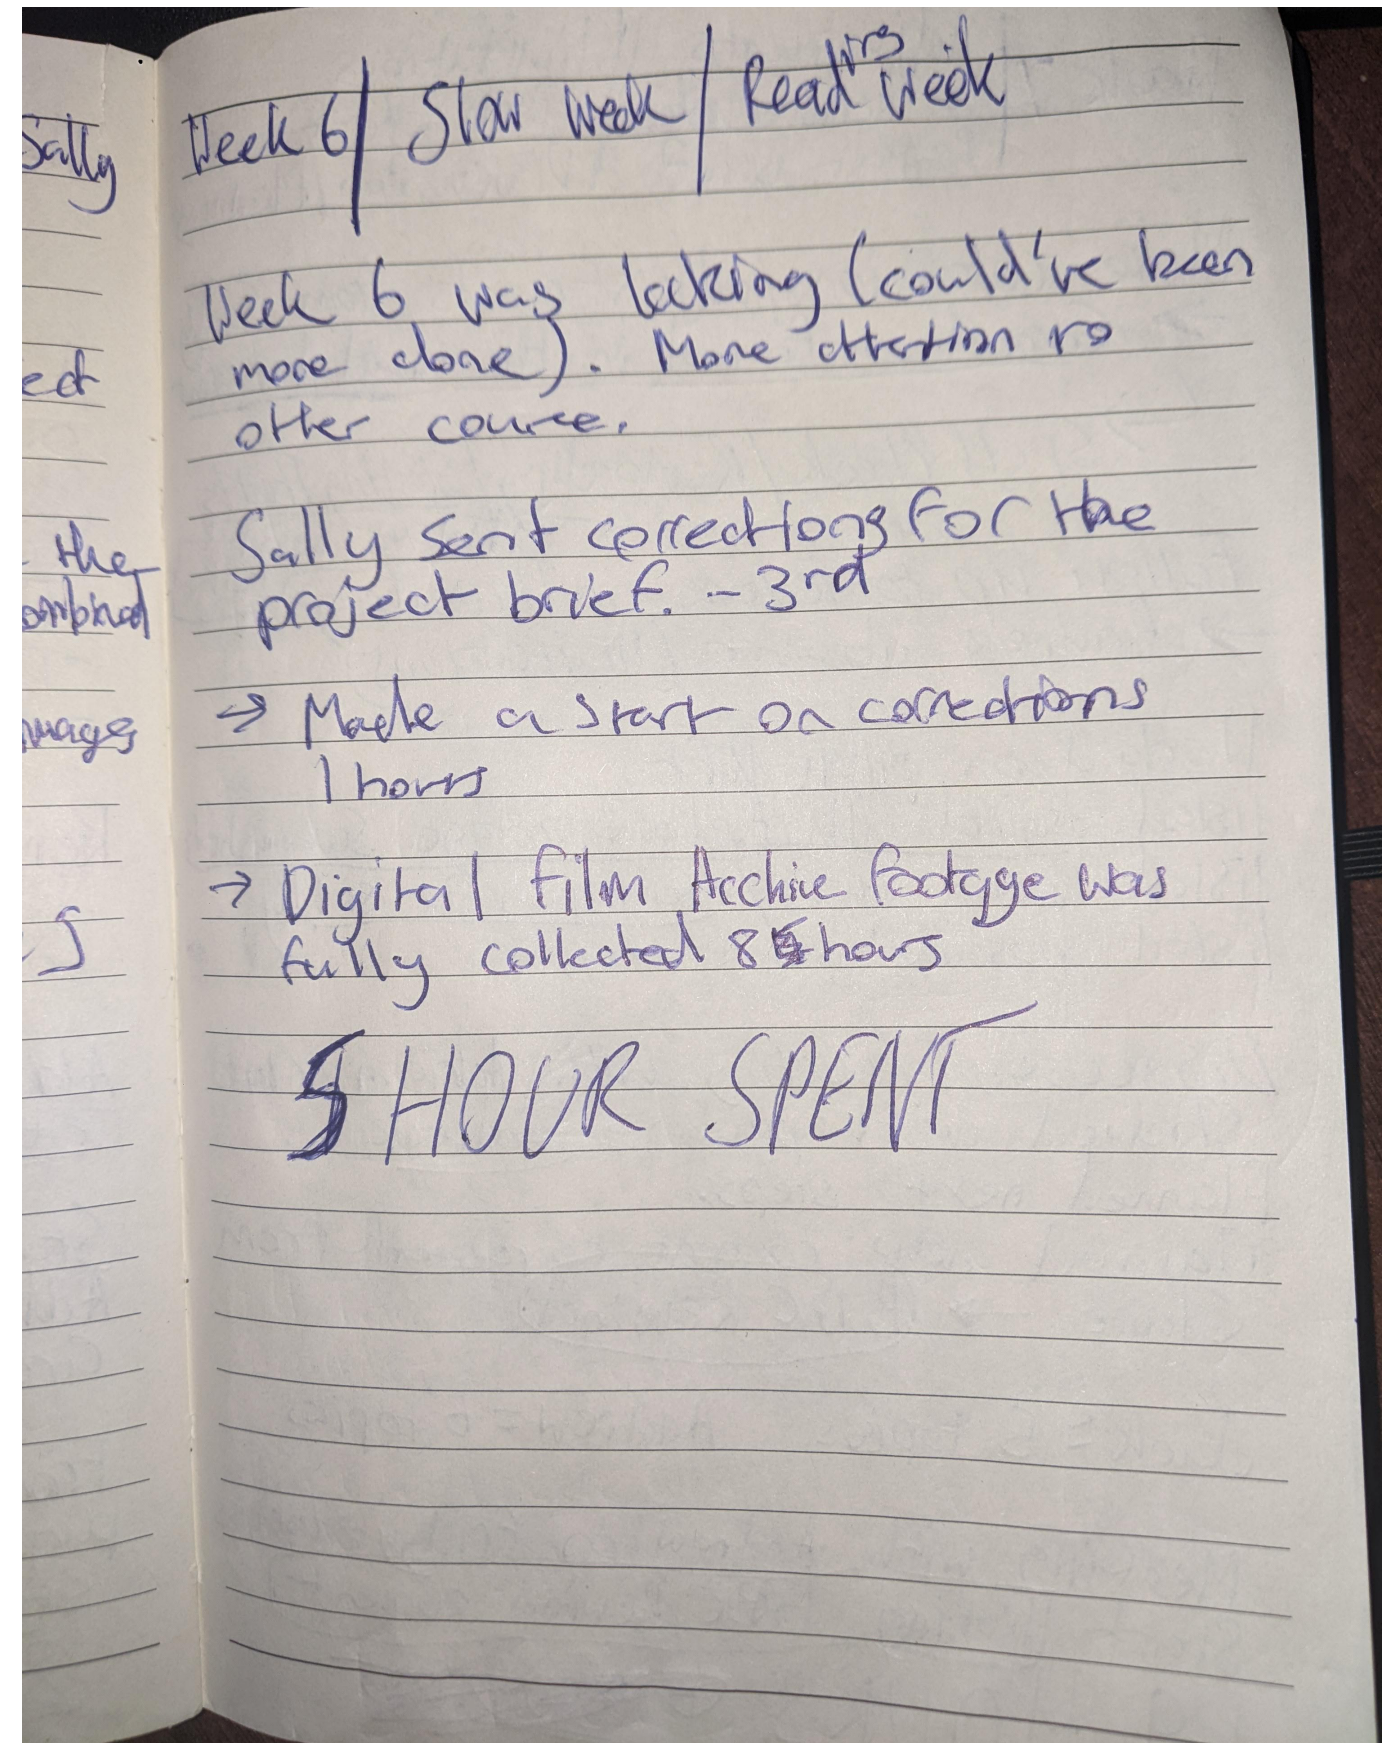 Sally
ect
the
ombined
mages
Week 6 / Slow week / Reading week
Week 6 was lacking (could've been
more done). More attention to
other course.
Sally sent corrections for the
project brief. - 3rd
→ Made a start on corrections
1 hours
→ Digital Film Acchive footage was
fully collected 8 hours
5 HOUR SPENT